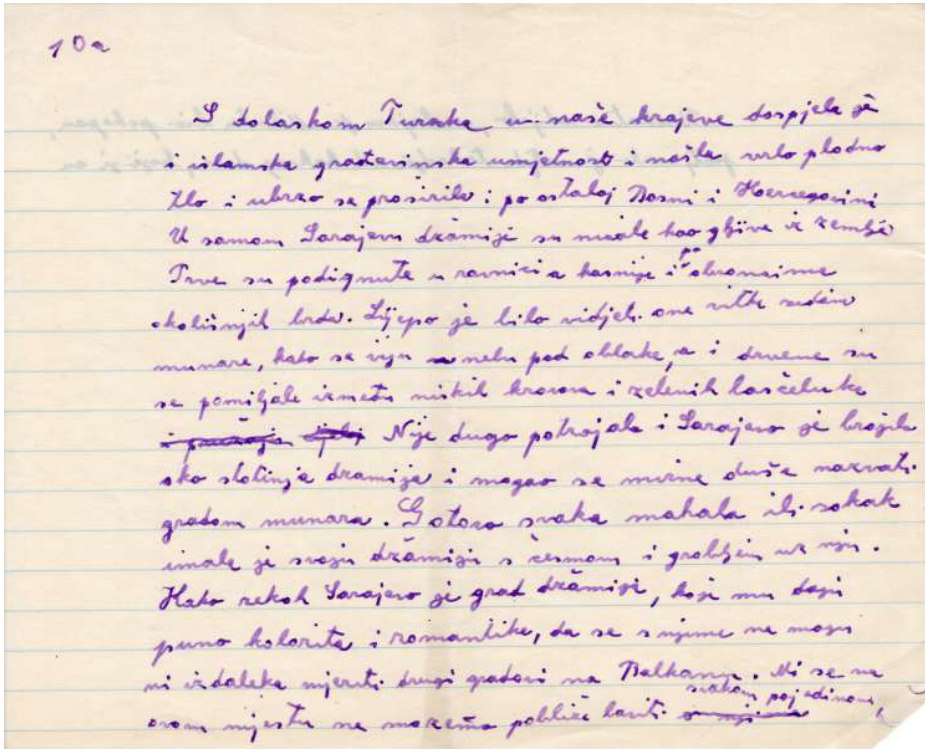 10a
S dolaskom Turaka u naše krajeve dospjela je
i islamska građevinska umjetnost i našla vrlo plodno
tlo i ubrzo se proširila i po ostaloj Bosni i Hercegovini
U samom Sarajevu džamije su nicale kao gljive iz zemlje
Prve su podignute u ravnici a kasnije i po obroncima
okolišnjih brda. Lijepo je bilo vidjeti one vitke
munare, kako se viju u nebu pod oblake, a i drvene su
se pomiljale između niskih krovova i zelenih
Nije dugo potrajalo i Sarajevo je brojilo
oko stotinja džamija i mogao se mirne duše nazvati
gradom munara. Gotovo svaka mahala ili sokak
imala je svoju džamiju s česmom i grobljem uz nju.
Kako rekoh Sarajevo je grad džamija, koje mu daju
puno kolorita i romantike, da se s njime ne mogu
ni izdaleka mjeriti drugi gradovi na Balkanu. Mi se na
ovom mjestu ne možemo pobliže baviti svakom pojedinom,